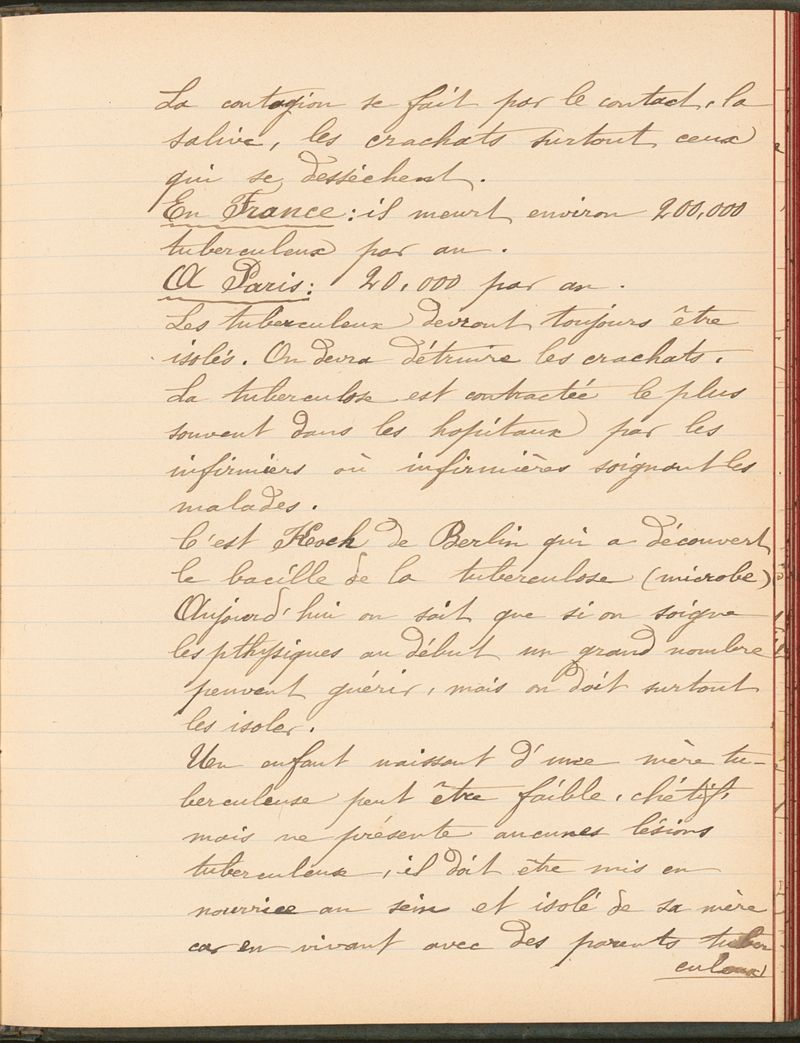 La contagion se fait par le contact, la
salive, les crachats surtout ceux
qui se dessèchent.
En France : il meurt environ 200,000
tuberculeux par an.
A Paris : 20,000 par an.
Les tuberculeux devront toujours être
isolés. On devra détruire les crachats.
La tuberculose est contractée le plus
souvent dans les hopitaux par les
infirmiers où infirmières soignant les
malades.
C'est Koch de Berlin qui a découvert
le bacille de la tuberculose (microbe)
Aujourd'hui on sait que si on soigne
les pthysiques au début un grand nombre
peuvent guérir, mais on doit surtout
les isoler.
Un enfant naissant d'une mère tu-
berculeuse peut être faible, chétif,
mais ne présente aucunes lésions
tuberculeux, il doit être mis en
nourrice au sein et isolé de sa mère
car en vivant avec des parents tuber
culeux